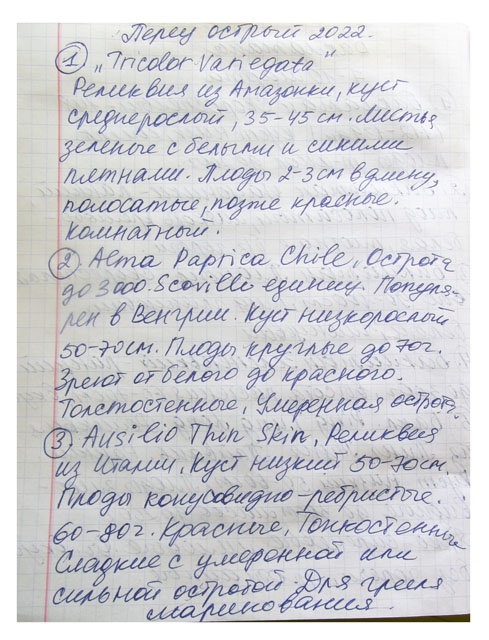 Перец острый 2022.
1 „Tricolor Variegata"
Реликвия из Амазонки, куст
среднерослый, 35-45см. Листья
зеленые с белыми и синими
пятнами. Плоды 2-3см в длину,
полосатые, позже красные.
Комнатный.
2 Alma Paprica Chile, Острота
до 3000 Scoville единиц. Популя-
рен в Венгрии. Куст низкорослый
50-70см. Плоды круглые до 70г.
Зреют от белого до красного.
Толстостенные, Умеренная острота.
3 Ausilio Thin Skin, Реликвия
из Италии. Куст низкий 50-70см.
Плоды конусовидно-ребристые.
60-80г. Красные, Тонкостенные
Сладкие с умеренной или
сильной остротой. Для гриля
маринования.